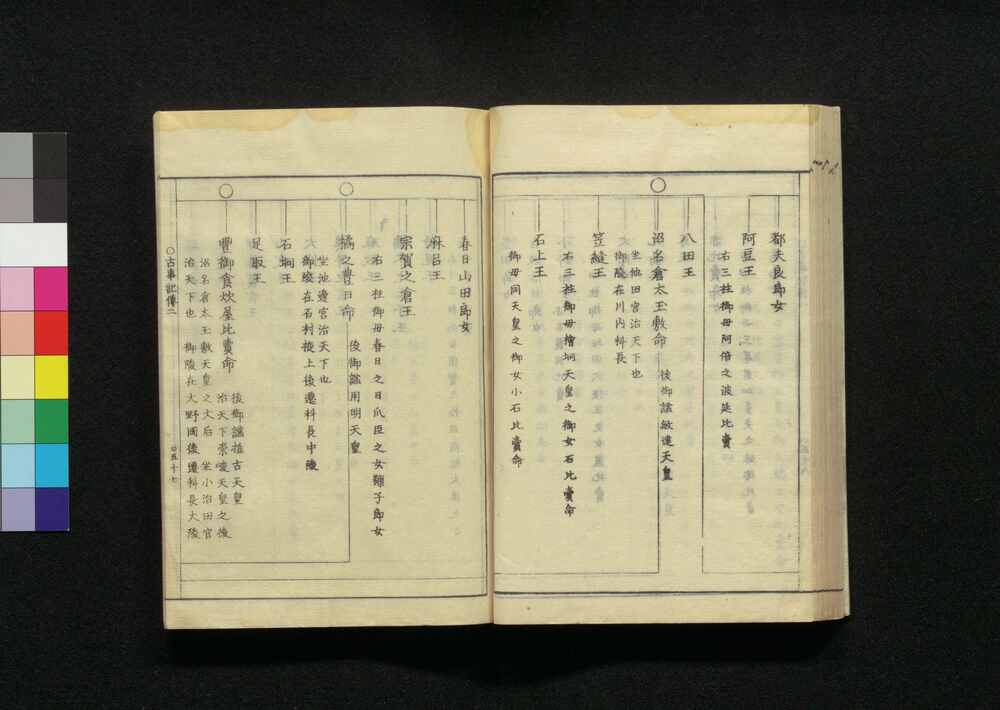 都夫良郎女
阿豆王
右三柱御母阿倍之波延比賣
八田王
沼名倉太玉敷命
後御諡敏達天皇
坐他田宮治天下也
御陵在川内科長
笠縫王
右三柱御母檜坰天皇之御女石比賣命
石上王
御母同天皇之御女小石比賣命
春日山田郎女
麻呂王
宗賀之倉王
右三柱御母春日之日爪臣之女糠子郎女
橘之豊日命
後御諡用明天皇
坐池邊宮治天下也
御陵在石村掖上後遷科長中陵
石坰王
足取王
豊御食炊屋比賣命
後御諡推古天皇
治天下崇峻天皇之後
沼名倉太玉敷天皇之大后
坐小治田宮
治天下也
御陵在大野岡後遷科長大陵
○古事記傳二
○五十七